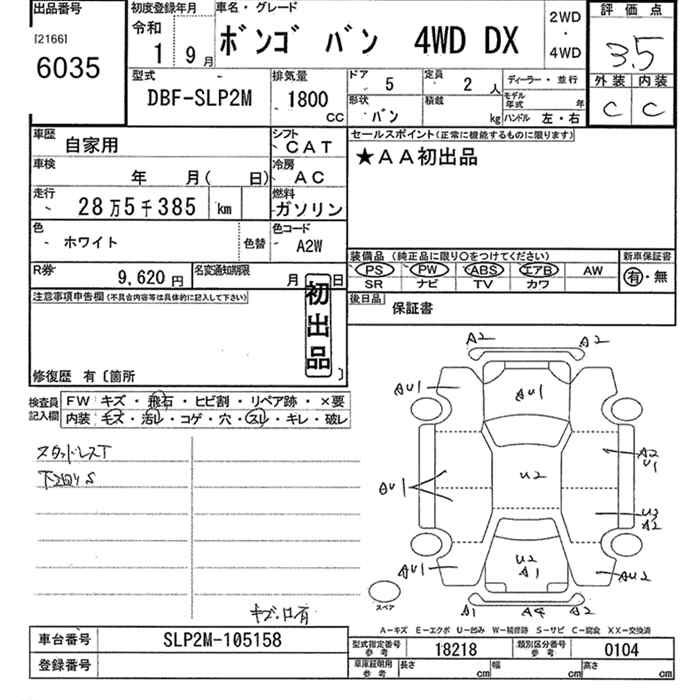 出品番号
[2166]
6035
初度登録年月
令和
1 9月
車名・グレード
ボンゴ バン 4WD DX
2WD
・
4WD
評価点
3.5
型式
DBF-SLP2M
排気量
1800
CC
ドア
5
定員
2 人
ディーラー・並行
形状
バン
積載
kg
モデル年式 年
ハンドル 左・右
外装 内装
C C
車歴
自家用
シフト
CAT
車検
年 月( 日)
冷房
AC
走行
28万5千385 km
燃料
ガソリン
色
ホワイト
色替
色コード
A2W
R券
9,620円
名変通知期限
月 日
セールスポイント(正常に機能するものに限ります)
★AA初出品
装備品 (純正品に限り○をつけてください)
新車保証書
PS PW ABS エアB AW
SR ナビ TV カワ
有・無
後日品
保証書
注意事項申告欄(不具合内容等は具体的に記入して下さい)
初出品
修復歴 有〔箇所 〕
検査員記入欄
FW キズ・飛石・ヒビ割・リペア跡・×要
内装 モズ・活レ・コゲ・穴・スレ・キレ・破レ
スタッドレスT
キズ・凹有
A2 A2
AU1 AU1 AU1
A2
U1
AU1 U2
U3
A2
AU1 U2
A1 AU2
A1 A4 A2
スペア
A-キズ E-エクボ U-凹み W-補修跡 S-サビ C-腐食 XX-交換済
車台番号
SLP2M-105158
登録番号
型式指定番号
参考
18218
類別区分番号
参考
0104
車庫証明用
参考
長さ cm
幅 cm
高さ cm